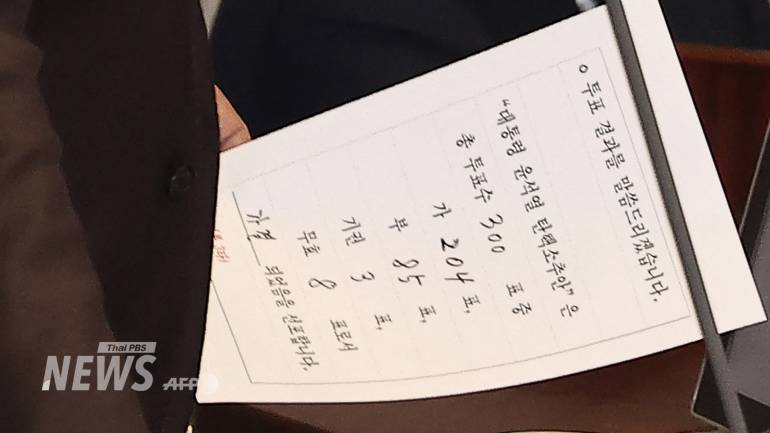 ○ 투표 결과를 말씀드리겠습니다.
"대통령 윤석열 탄핵소추안"은
총 투표수 300 표 중
가 204 표,
부 85 표,
기권 3 표,
무효 8 표로서
가결 되었음을 선포합니다.
Thai PBS
NEWS AFP